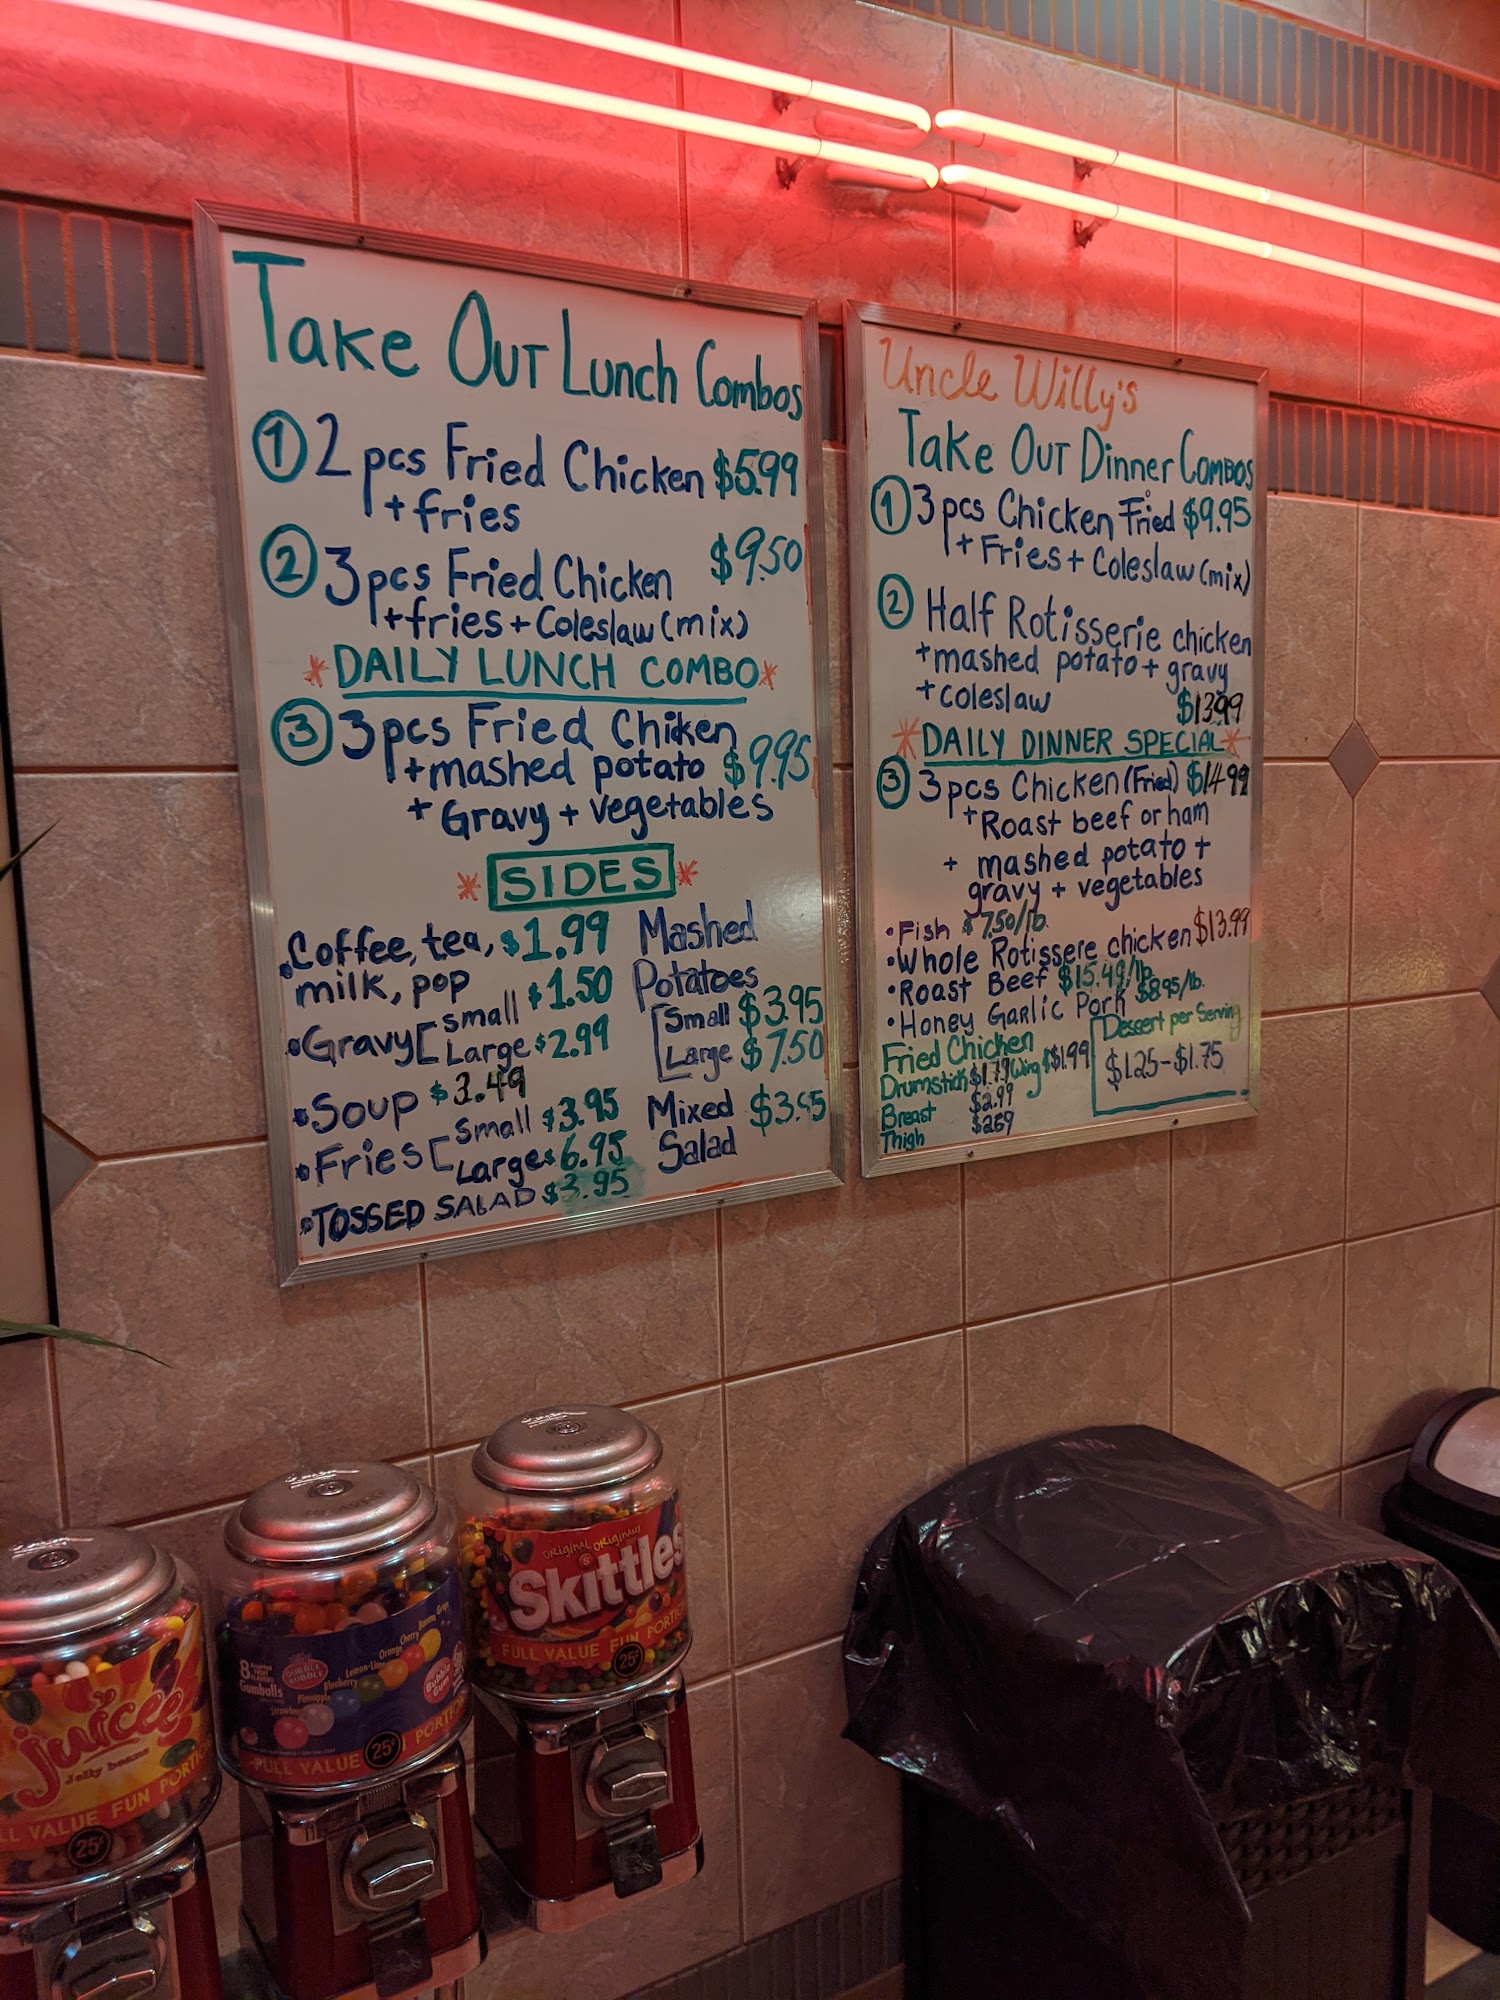 Take Out Lunch Combos
1 2 pcs Fried Chicken $5.99
+ fries
2 3 pcs Fried Chicken $9.50
+ fries + Coleslaw (mix)
* DAILY LUNCH COMBO *
3 3 pcs Fried Chiken
+ mashed potato $9.95
+ Gravy + vegetables
* SIDES *
• Coffee, tea, $1.99
milk, pop
• Gravy [ small $1.50
Large $2.99
• Soup $3.49
• Fries [ Small $3.95
Large $6.95
• TOSSED SALAD $3.95
Mashed
Potatoes
[ Small $3.95
Large $7.50
Mixed
Salad
Uncle Willy's
Take Out Dinner Combos
1 3 pcs Chicken Fried $9.95
+ Fries + Coleslaw (mix)
2 Half Rotisserie chicken
+ mashed potato + gravy
+ coleslaw $13.99
* DAILY DINNER SPECIAL *
3 3 pcs Chicken (Fried) $14.99
+ Roast beef or ham
+ mashed potato +
gravy + vegetables
• Fish $7.50/lb.
• Whole Rotissere chicken $13.99
• Roast Beef $15.49/lb.
• Honey Garlic Pork $8.95/lb.
Fried Chicken
Drumstick $1.79 Wing $1.99
Breast $2.99
Thigh $2.69
Dessert per Serving
$1.25-$1.75
juicee
Jelly beans
LL VALUE FUN PORTI
25¢
8 Assorted
Gumballs
DUBBLE BUBBLE
Strawberry
Pineapple
Blueberry
Lemon-Lime
Orange
Cherry
Banana
Grape
FULL VALUE
25¢
PORTIO
ORIGINAL ORIGINAL
S
Skittles
FULL VALUE FUN PORTIO
25¢